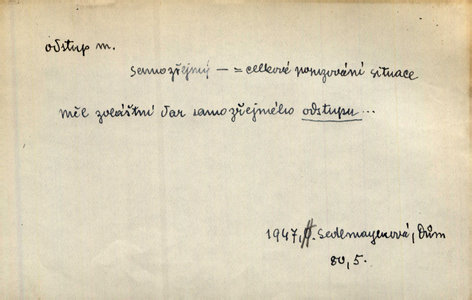 odstup m.
samozřejmý — = celkové pozorování situace
měl zvláštní dar samozřejmého odstupu...
1947, H. Sedlmayerová, Dům
80, 5.